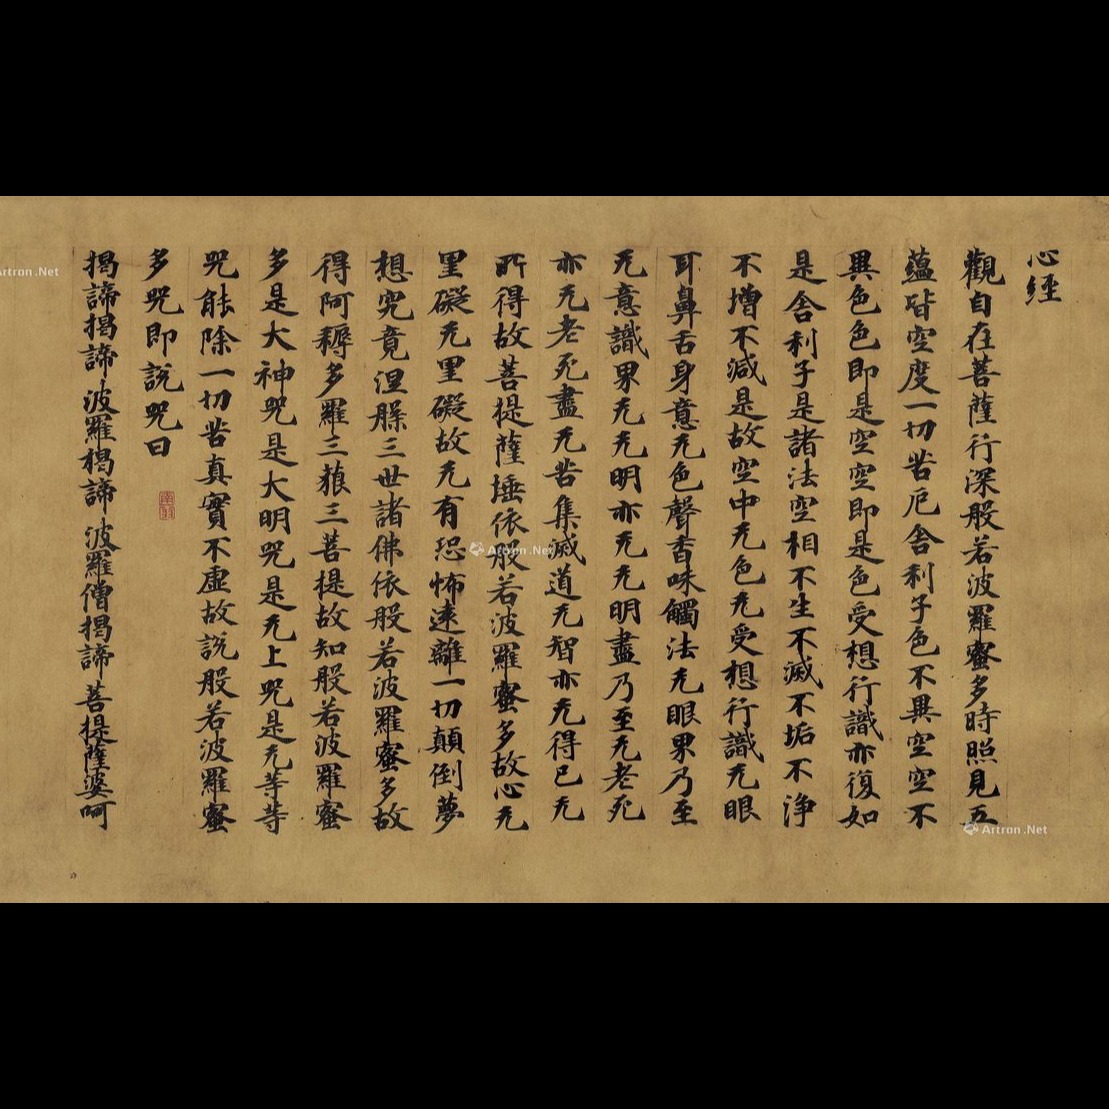 心經
觀自在菩薩行深般若波羅蜜多時照見五
蘊皆空度一切苦厄舍利子色不異空空不
異色色即是空空即是色受想行識亦復如
是舍利子是諸法空相不生不滅不垢不淨
不增不減是故空中无色无受想行識无眼
耳鼻舌身意无色聲香味觸法无眼界乃至
无意識界无无明亦无无明盡乃至无老死
亦无老死盡无苦集滅道无智亦无得已无
所得故菩提薩埵依般若波羅蜜多故心无
罣礙无罣礙故无有恐怖遠離一切顛倒夢
想究竟涅槃三世諸佛依般若波羅蜜多故
得阿耨多羅三藐三菩提故知般若波羅蜜
多是大神咒是大明咒是无上咒是无等等
咒能除一切苦真實不虛故說般若波羅蜜
多咒即說咒曰
南羽
揭諦揭諦 波羅揭諦 波羅僧揭諦 菩提薩婆呵
Artron.Net
Artron.Net
Artron.Net